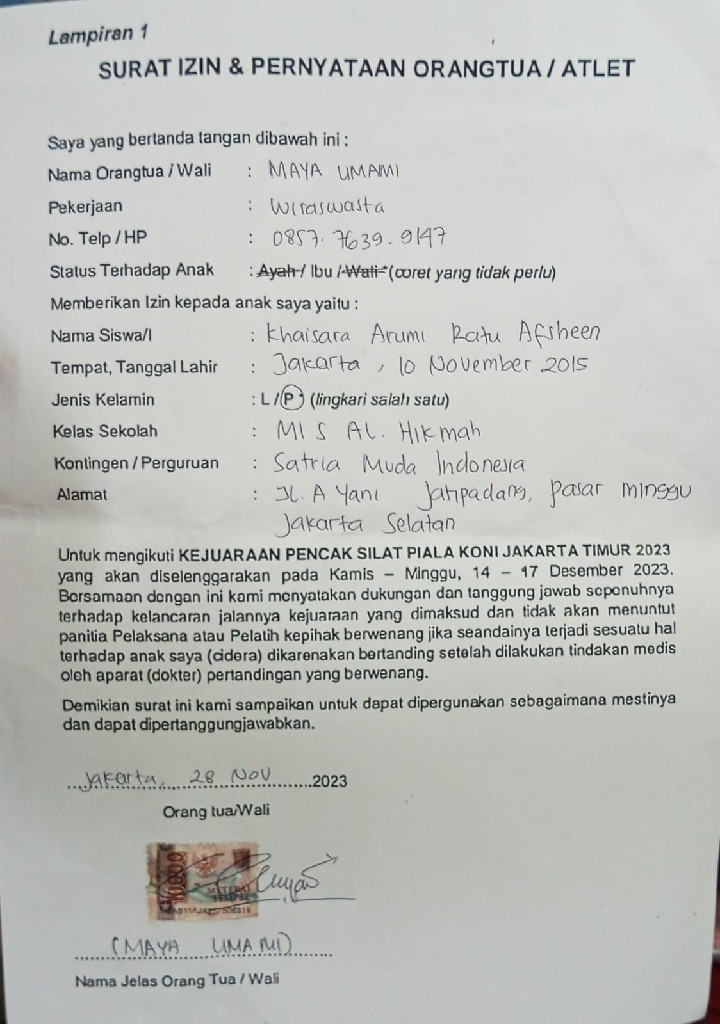 Lampiran 1
SURAT IZIN & PERNYATAAN ORANGTUA / ATLET
Saya yang bertanda tangan dibawah ini :
Nama Orangtua / Wali : MAYA UMAMI
Pekerjaan : Wiraswasta
No. Telp / HP : 0857.7639.9147
Status Terhadap Anak : Ayah / Ibu / Wali (coret yang tidak perlu)
Memberikan Izin kepada anak saya yaitu :
Nama Siswa/I : Khaisara Arumi Ratu Afsheen
Tempat, Tanggal Lahir : Jakarta, 10 November 2015
Jenis Kelamin : L / P (lingkari salah satu)
Kelas Sekolah : MIS AL. Hikmah
Kontingen / Perguruan : Satria Muda Indonesia
Alamat : JL. A Yani Jatipadang, Pasar Minggu
Jakarta Selatan
Untuk mengikuti KEJUARAAN PENCAK SILAT PIALA KONI JAKARTA TIMUR 2023
yang akan diselenggarakan pada Kamis – Minggu, 14 – 17 Desember 2023.
Bersamaan dengan ini kami menyatakan dukungan dan tanggung jawab sepenuhnya
terhadap kelancaran jalannya kejuaraan yang dimaksud dan tidak akan menuntut
panitia Pelaksana atau Pelatih kepihak berwenang jika seandainya terjadi sesuatu hal
terhadap anak saya (cidera) dikarenakan bertanding setelah dilakukan tindakan medis
oleh aparat (dokter) pertandingan yang berwenang.
Demikian surat ini kami sampaikan untuk dapat dipergunakan sebagaimana mestinya
dan dapat dipertanggungjawabkan.
Jakarta, 28 Nov 2023
Orang tua/Wali
10000
METERAI
TEMPEL
(MAYA UMAMI)
Nama Jelas Orang Tua / Wali